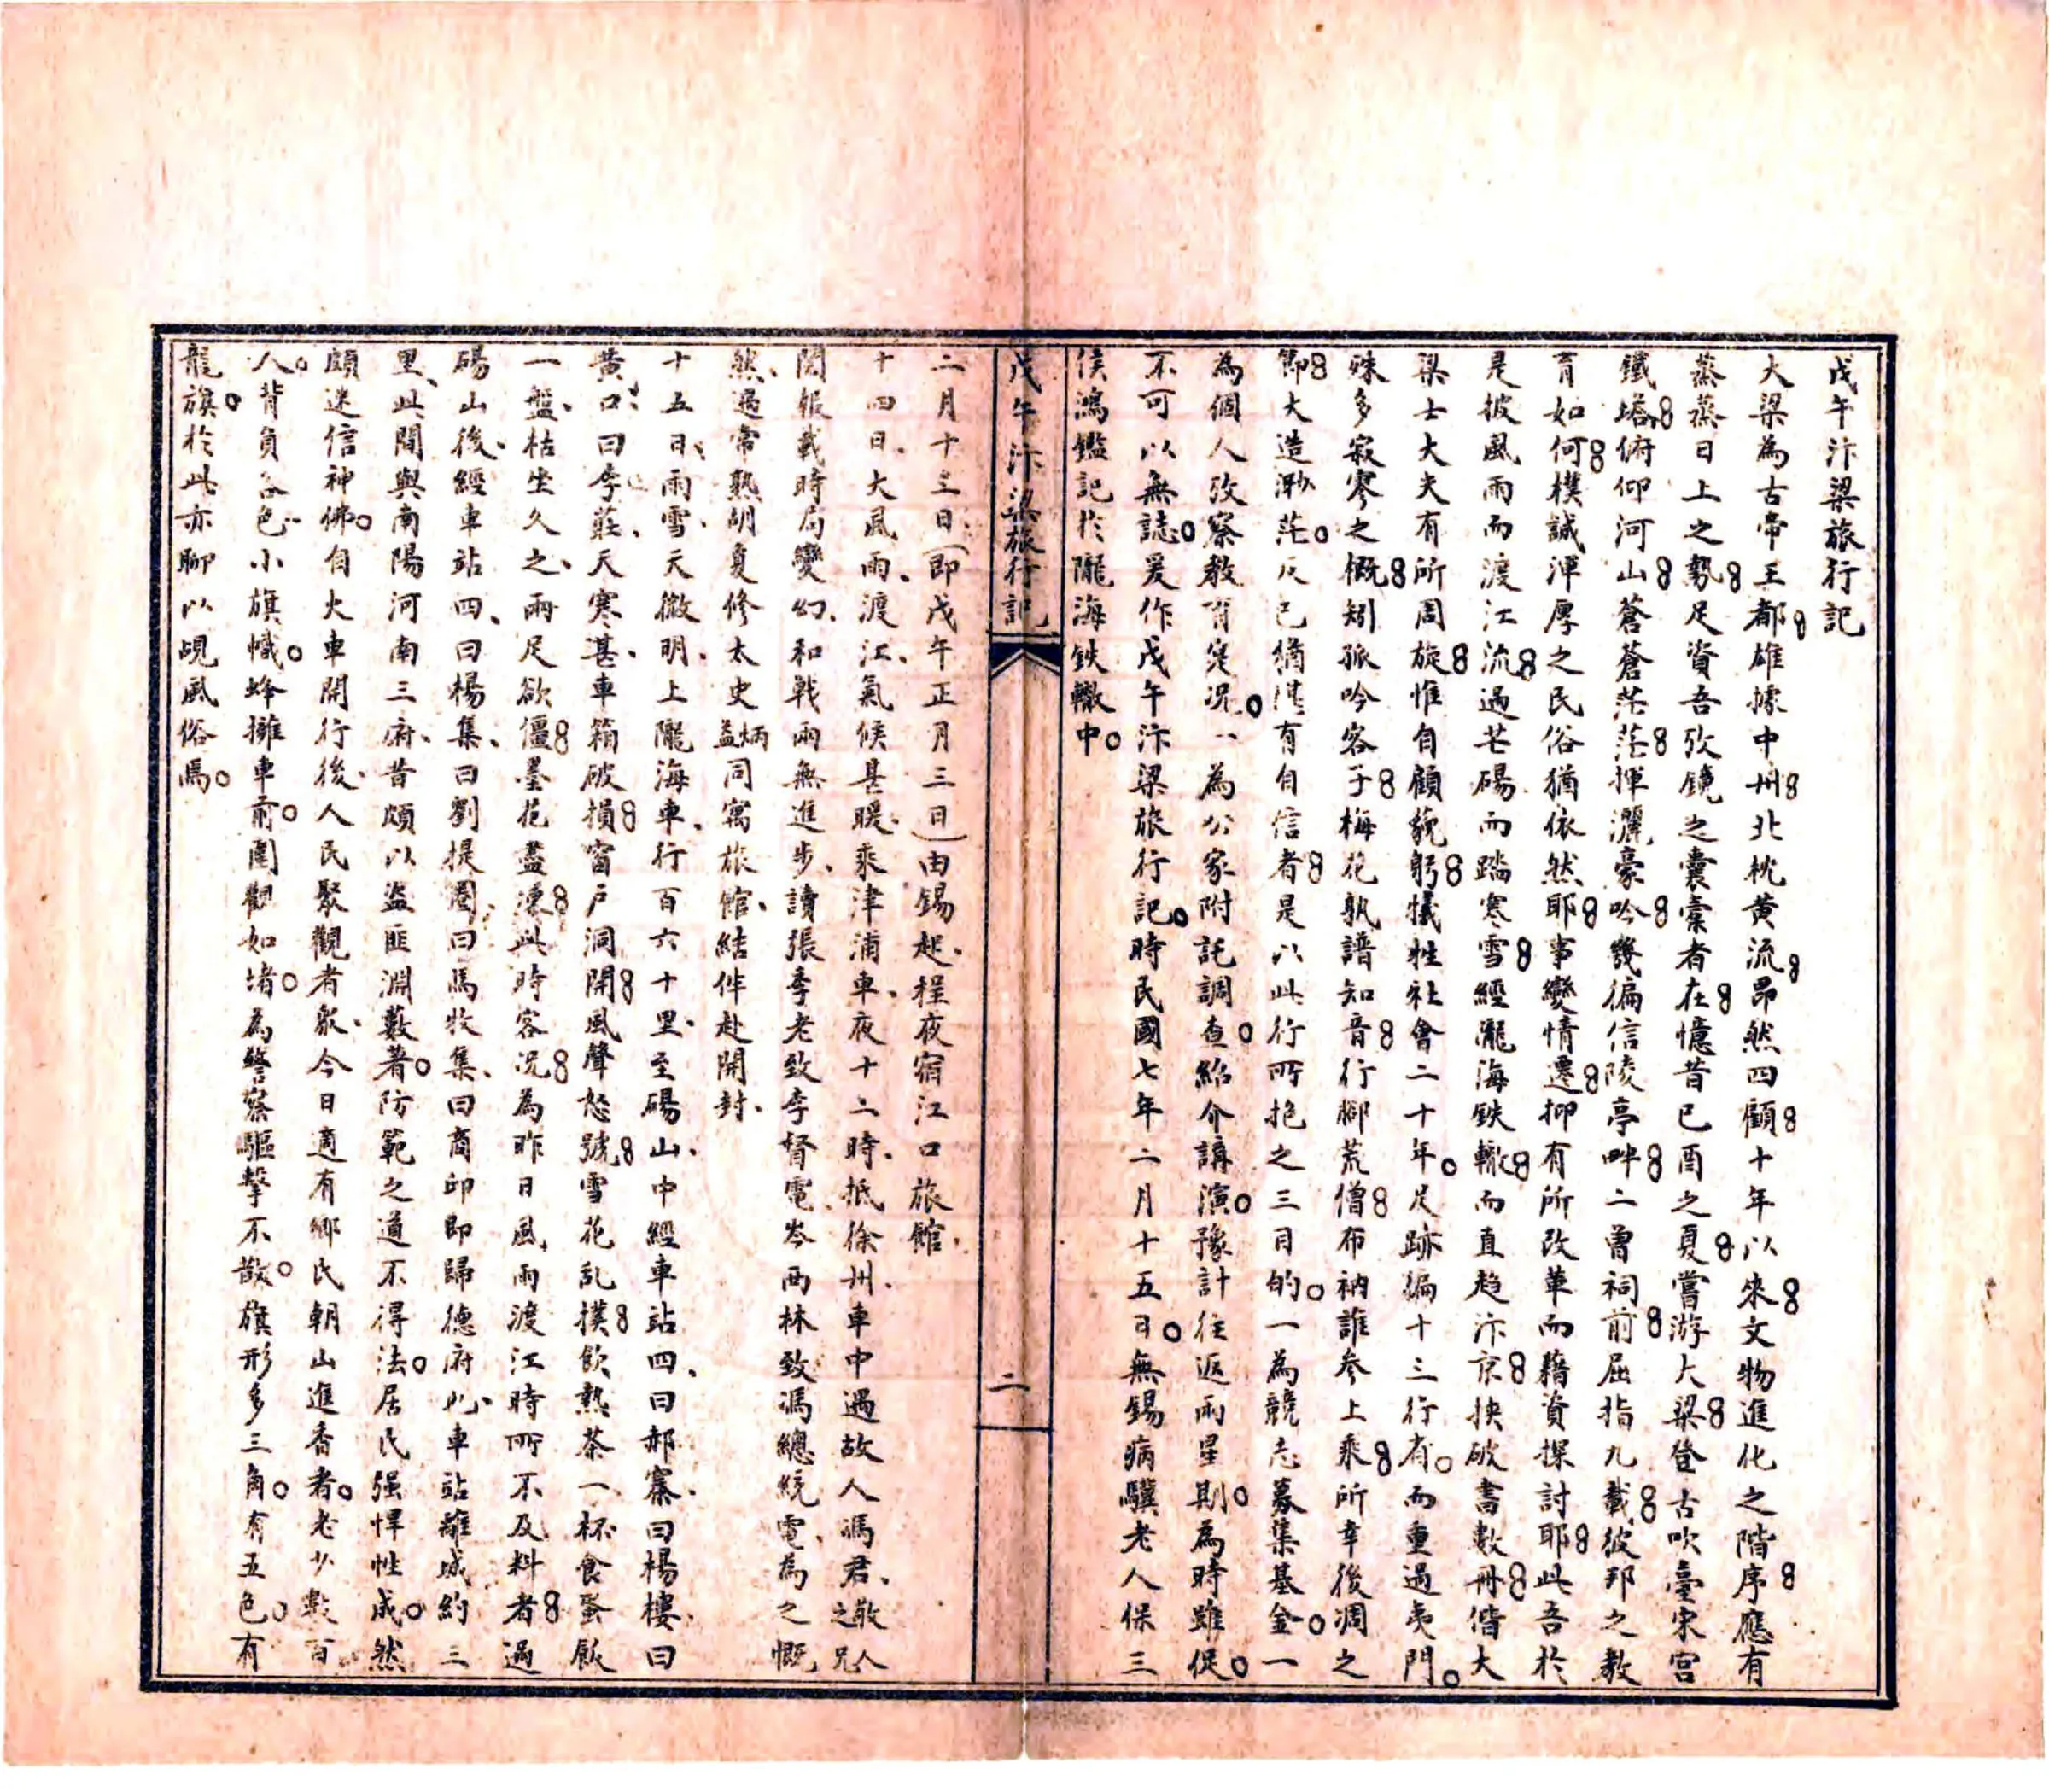 戊午汴梁旅行記
大梁為古帝王都雄據中州北枕黄流昂然四顧十年以來文物進化之階序應有
蒸蒸日上之勢足資吾攷鏡之囊橐者在憶昔己酉之夏嘗游大梁登古吹臺宋宮
鐵塔俯仰河山蒼蒼茫茫揮灑豪吟幾徧信陵亭畔二曾祠前屈指九載彼邦之教
育如何樸誠渾厚之民俗猶依然耶事變情遷抑有所改革而藉資探討耶此吾於
是披風雨而渡江流過芒碭而踏寒雪經隴海鉄轍而直趋汴京抉破書數冊偕大
梁士大夫有所周旋惟自顧藐躬犧牲社會二十年足跡徧十三行省而重過夷門
殊多寂寥之概矧孤吟客子梅花孰譜知音行脚荒僧布衲誰参上乘所幸後凋之
節大造渺茫反己猶堪有自信者是以此行所抱之三目的一為競志募集基金一
為個人攷察教育寔况一為公家附託調查紹介講演豫計往返兩星期為時雖促
不可以無誌爰作戊午汴梁旅行記時民國七年二月十五日無錫病驥老人保三
侯鴻鑑記於隴海鉄轍中
戊午汴梁旅行記
二
二月十三日(即戊午正月三日)由錫起程夜宿江口旅館
十四日大風雨渡江氣候甚暖乘津浦車夜十二時抵徐州車中遇故人馮君敬人之兄
閲報載時局變幻和戰兩無進步讀張季老致李督電岑西林致馮總統電為之慨
然遇常熟胡夏修太史炳益同寓旅館結伴赴開封
十五日雨雪天微明上隴海車行百六十里至碭山中經車站四曰郝寨曰楊樓曰
黄口曰李莊天寒甚車箱破損窗戸洞開風聲怒號雪花乱撲飲熱茶一杯食蛋飯
一盤枯坐久之兩足欲僵墨花盡凍此時客况為昨日風雨渡江時所不及料者過
碭山後經車站四曰楊集曰劉提圈曰馬牧集曰商邱即歸德府也車站離城約三
里此間與南陽河南三府昔頗以盜匪淵藪著防範之道不得法居民强悍性成然
頗迷信神佛自火車開行後人民聚觀者衆今日適有鄉民朝山進香者老少數百
人背負各色小旗幟蜂擁車前圍觀如堵為警察驅擊不散旗形多三角有五色有
龍旗於此亦聊以覘風俗焉